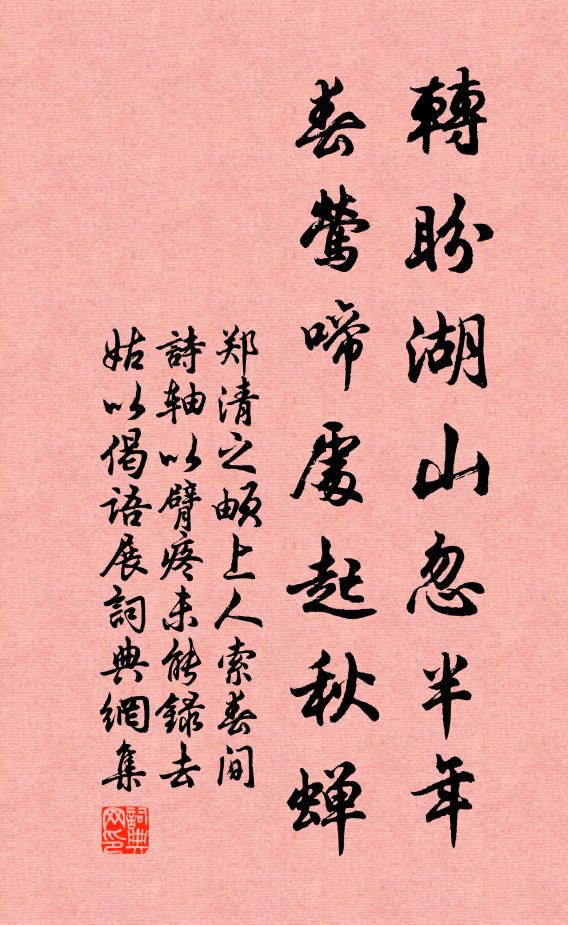 轉盼湖山忽半年
春鶯啼處起秋蟬
郑清之頔上人索春间
詩軸以臂疼未能録去
姑以偈語展詞典網集
詞典网印